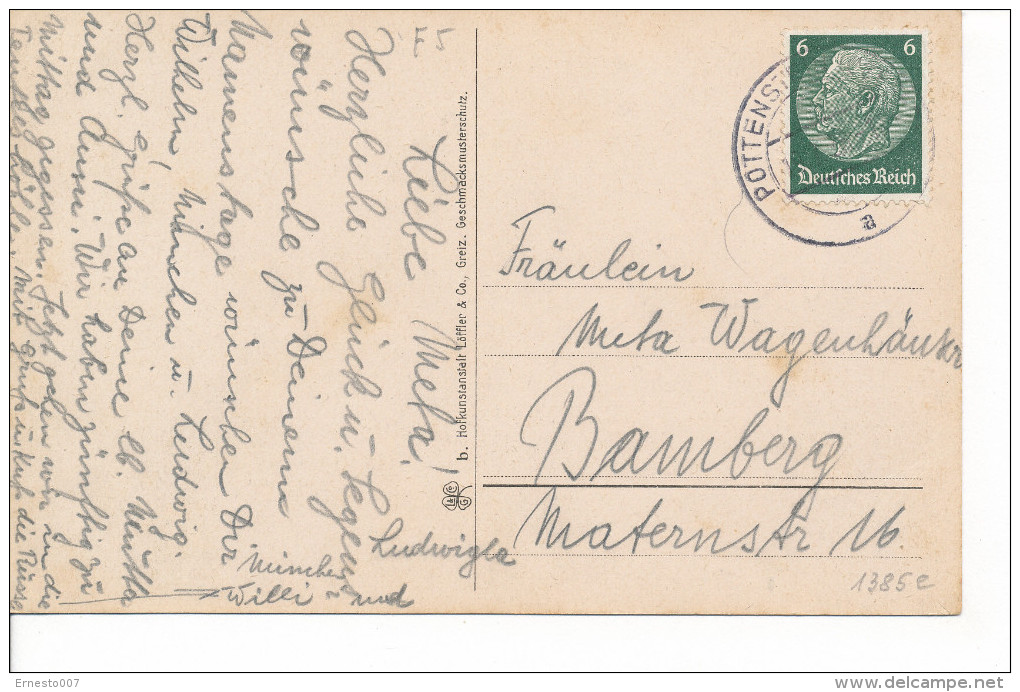 Liebe Meta!
Herzliche Glück u. Segens-
wünsche zu Deinem
Namenstage wünschen Dir
Wilhelm, Minchen u. Ludwig.
Herzl. Grüße an Deine lb. Mutter
und Anni. Wir haben zünftig zu
Mittag gegessen. Jetzt gehen wir in die
Teufelshöhle. mit Gruß u. Kuß die
Minchen
Willi und
Ludwigla
b. Hofkunstanstalt Löffler & Co., Greiz. Geschmacksmusterschutz.
L & C
G
6 6
Deutsches Reich
POTTENST
a
Fräulein
Meta Wagenhäuser
Bamberg
Maternstr 16.
1385e
Ernesto007
delcampe.net